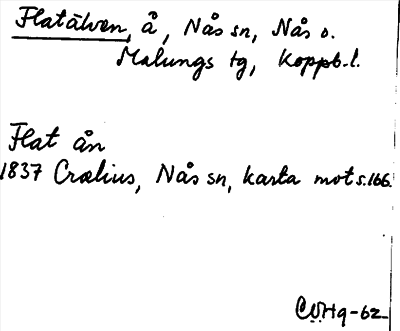 Flatälven, å, Nås sn, Nås o.
Malungs tg, Koppb. l.
Flat ån
1837 Crælius, Nås sn, karta mot s. 166.
CWHq-62